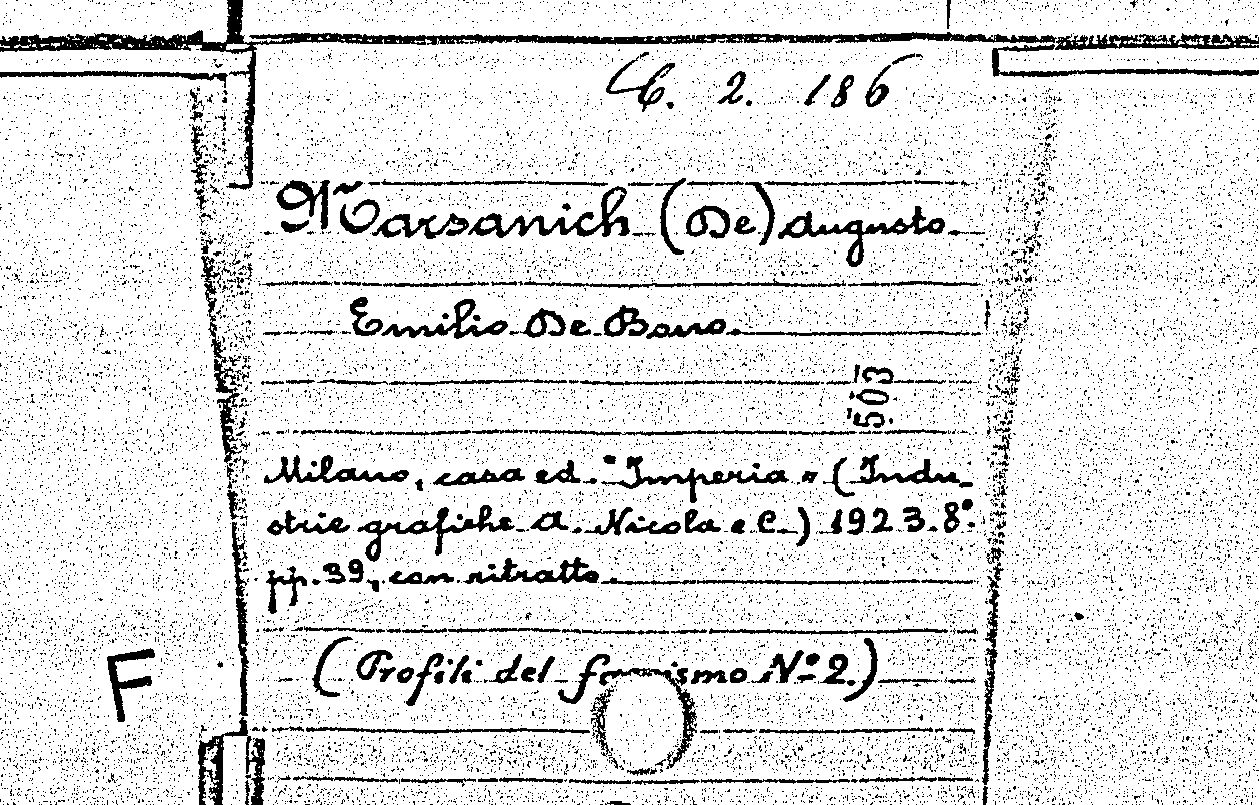 C. 2. 186
Marsanich (De) Augusto.
Emilio De Bono.
503
Milano, casa ed. "Imperia" (Indu-
strie grafiche A. Nicola e C.) 1923. 8°.
pp. 39, con ritratto.
(Profili del fascismo N° 2.)
F